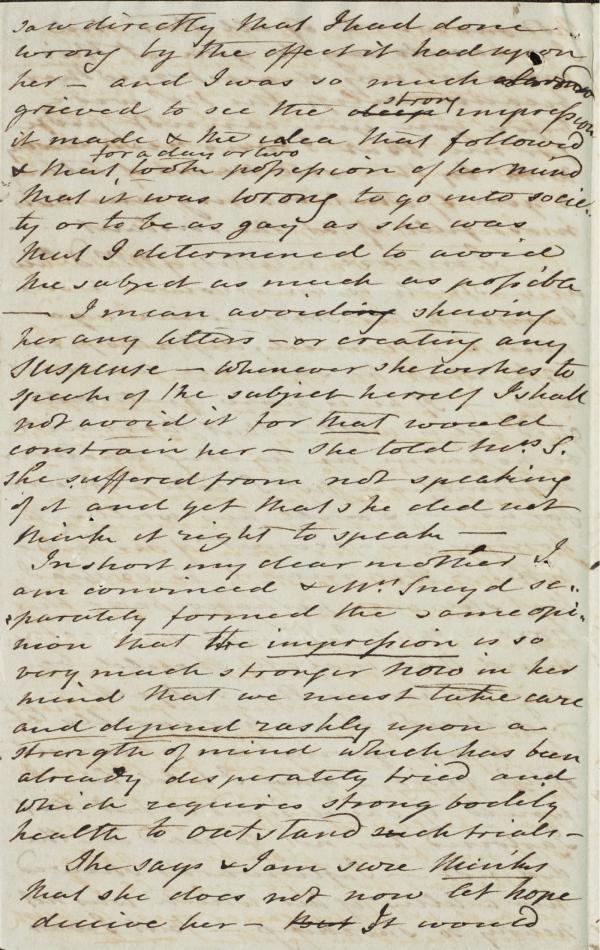 saw directly that I had done
wrong by the effect it had upon
her – and I was so much alarmed
grieved to see the deep strong impression
it made & the idea that followed
& that took for a day or two possession of her mind
that it was wrong to go into socie-
ty or to be as gay as she was
that I determined to avoid
the subject as much as possible
— I mean avoiding shewing
her any letters – or creating any
suspense – whenever she wishes to
speak of the subject herself I shall
not avoid it for that would
constrain her – she told Mrs S.
she suffered from not speaking
of it and yet that she did not
think it right to speak —
In short my dear mother I
am convinced & Mrs Sneyd se-
parately formed the same opi-
nion that the impression is so
very much stronger now in her
mind that we must take care
and depend rashly upon a
strength of mind which has been
already desperately tried and
which requires strong bodily
health to outstand such trials –
She says & I am sure thinks
that she does not now let hope
deceive her – But It would